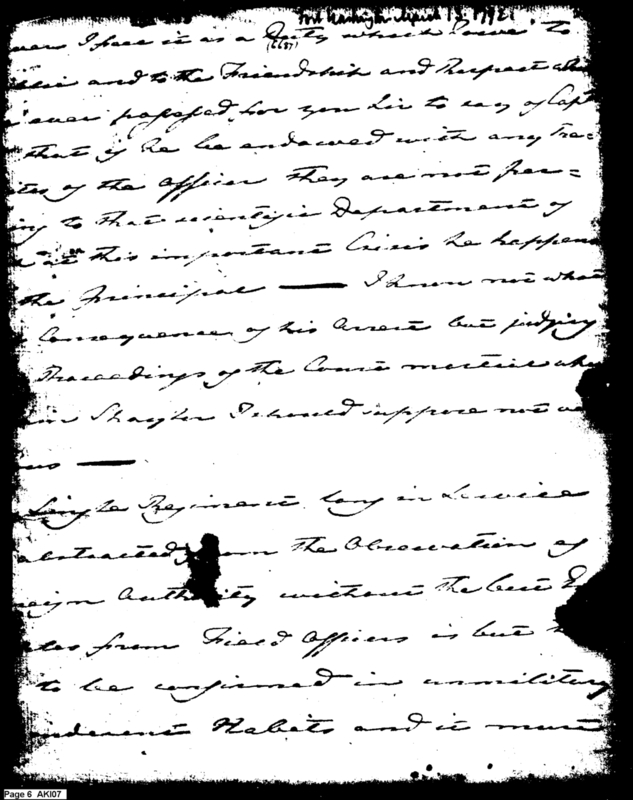 Fort Washington March 13, 1792
ever I feel it as a Duty which I owe to
(6687)
and to the Friendship and Respect
ever possessed for you Sir to say of Capt
that if he be endowed with any
of the Officer they are not
to that scientific Department of
at this important Crisis he happens
the Principal — I know not what
Consequence of his Arrest but judging
Proceedings of the Court martial
Shaylor I should suppose not
—
Single Regiment long in Service
abstracted from the Observation of
Authority without the best
from Field Officers is but
to be confirmed in unmilitary
Habits and it must
Page 6 AKI07